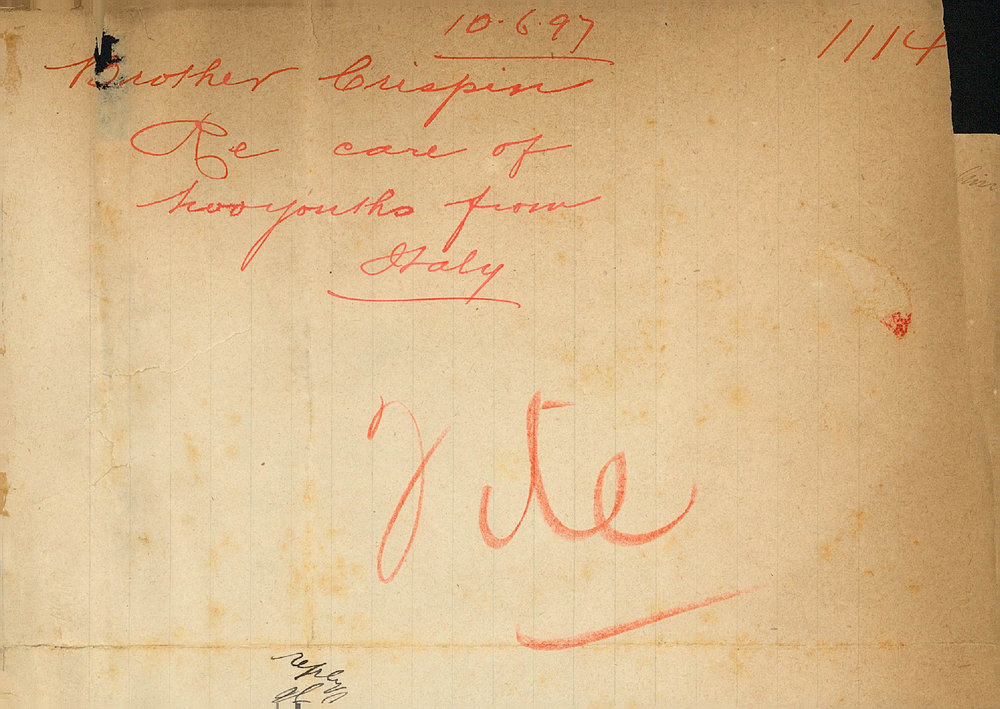 10.6.97
1114
Brother Crispin
Re care of
two youths from
Italy
reply